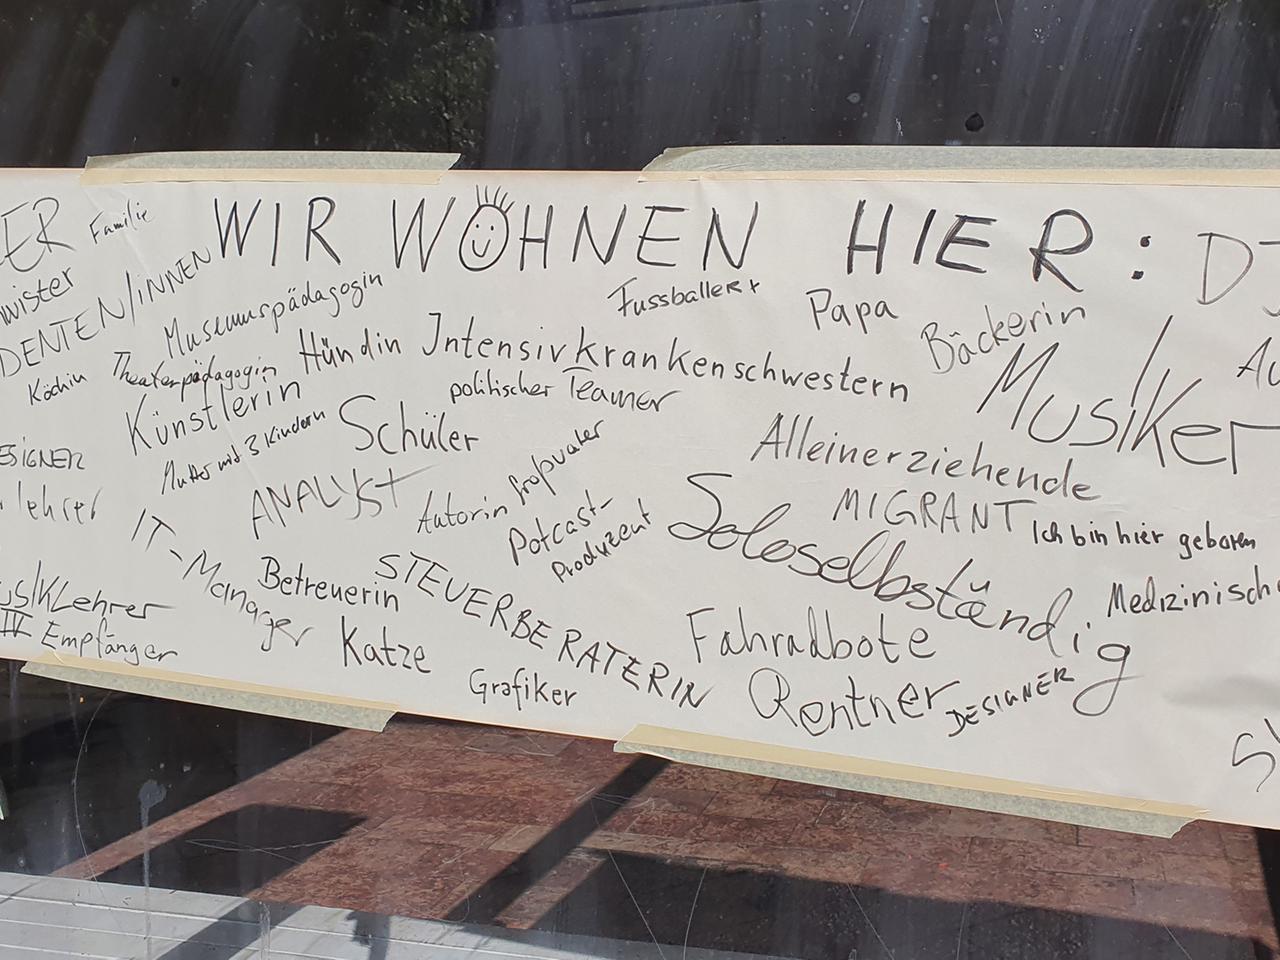 WIR WOHNEN HIER: DJ
ER
Familie
wister
DENTEN/INNEN
Museumspädagogin
Fussballer
Papa
Bäckerin
Musiker
Köchin
Theaterpädagogin
Hündin
Intensivkrankenschwestern
politischer Teamer
Künstlerin
Mutter mit 3 Kindern
Schüler
Alleinerziehende
ESIGNER
lehrer
ANALYST
Autorin
Großvater
Potcast-
Produzent
MIGRANT
Ich bin hier geboren
Soloselbständig
IT-Manager
Betreuerin
STEUERBERATERIN
Medizinische
usikLehrer
IV Empfänger
Katze
Fahradbote
Grafiker
Rentner
DESIGNER